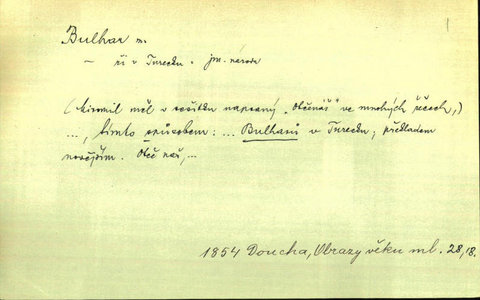 Bulhar m.
– ři v Turecku. jm. národa
(Miromil měl v sešitku napsaný „Otčenáš“ ve mnohých řečech,)
..., tímto způsobem: ... Bulharů v Turecku; překladem
novějším. Otče náš,...
1854 Doucha, Obrazy věku ml. 28,18.